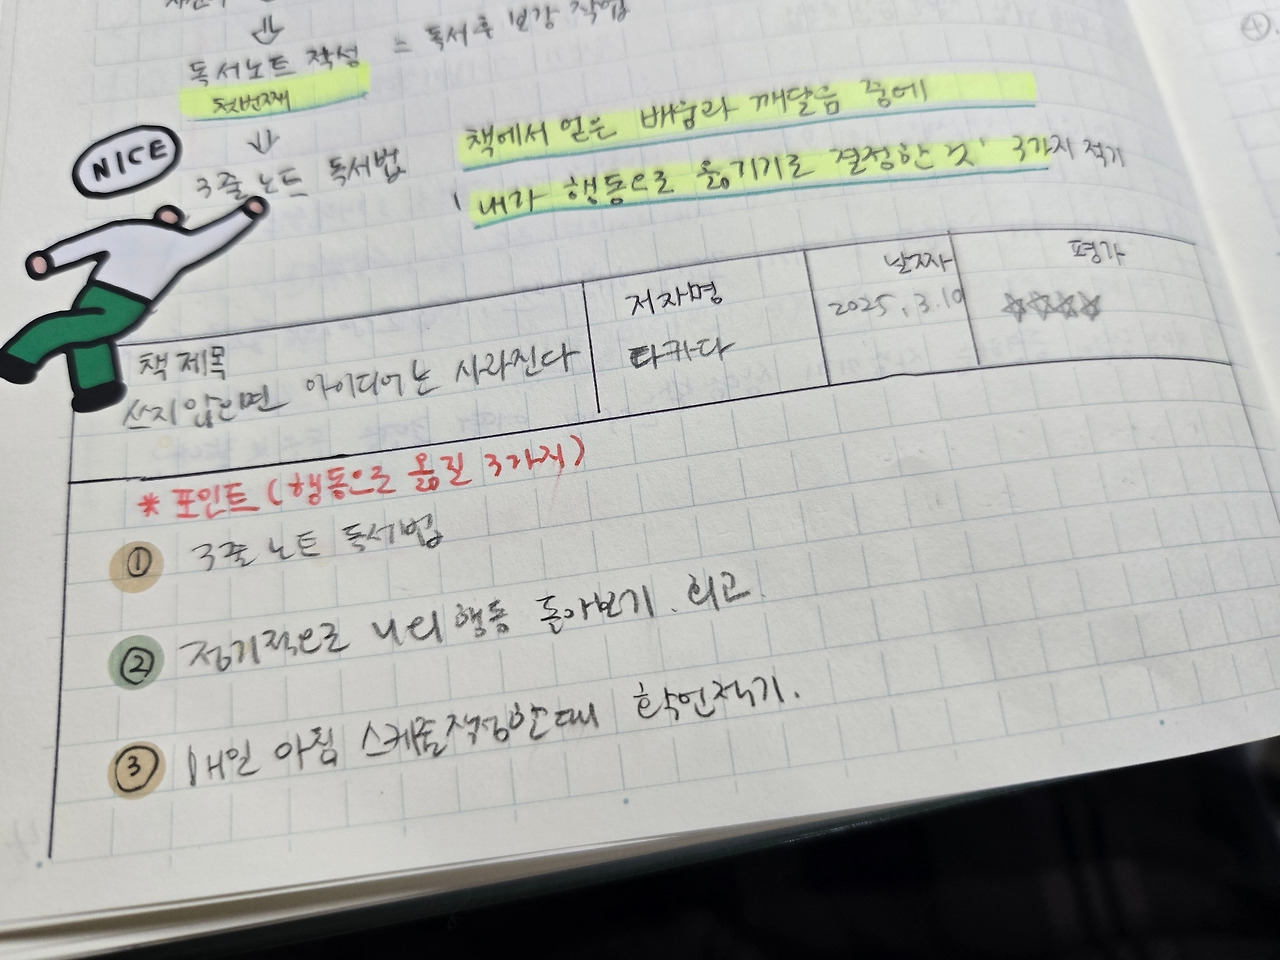 ⇓
독서노트 작성 = 독서 후 보강 작업
첫번째
⇓
NICE
3줄 노트 독서법
책에서 얻은 배움과 깨달음 중에
'내가 행동으로 옮기기로 결정한 것' 3가지 적기
책 제목
쓰지 않으면 아이디어는 사라진다
저자명
다카다
날짜
2025. 3. 10
평가
☆☆☆☆
* 포인트 (행동으로 옮길 3가지)
① 3줄 노트 독서법
② 정기적으로 나의 행동 돌아보기. 회고.
③ 매일 아침 스케줄작성할때 확언적기.
④.